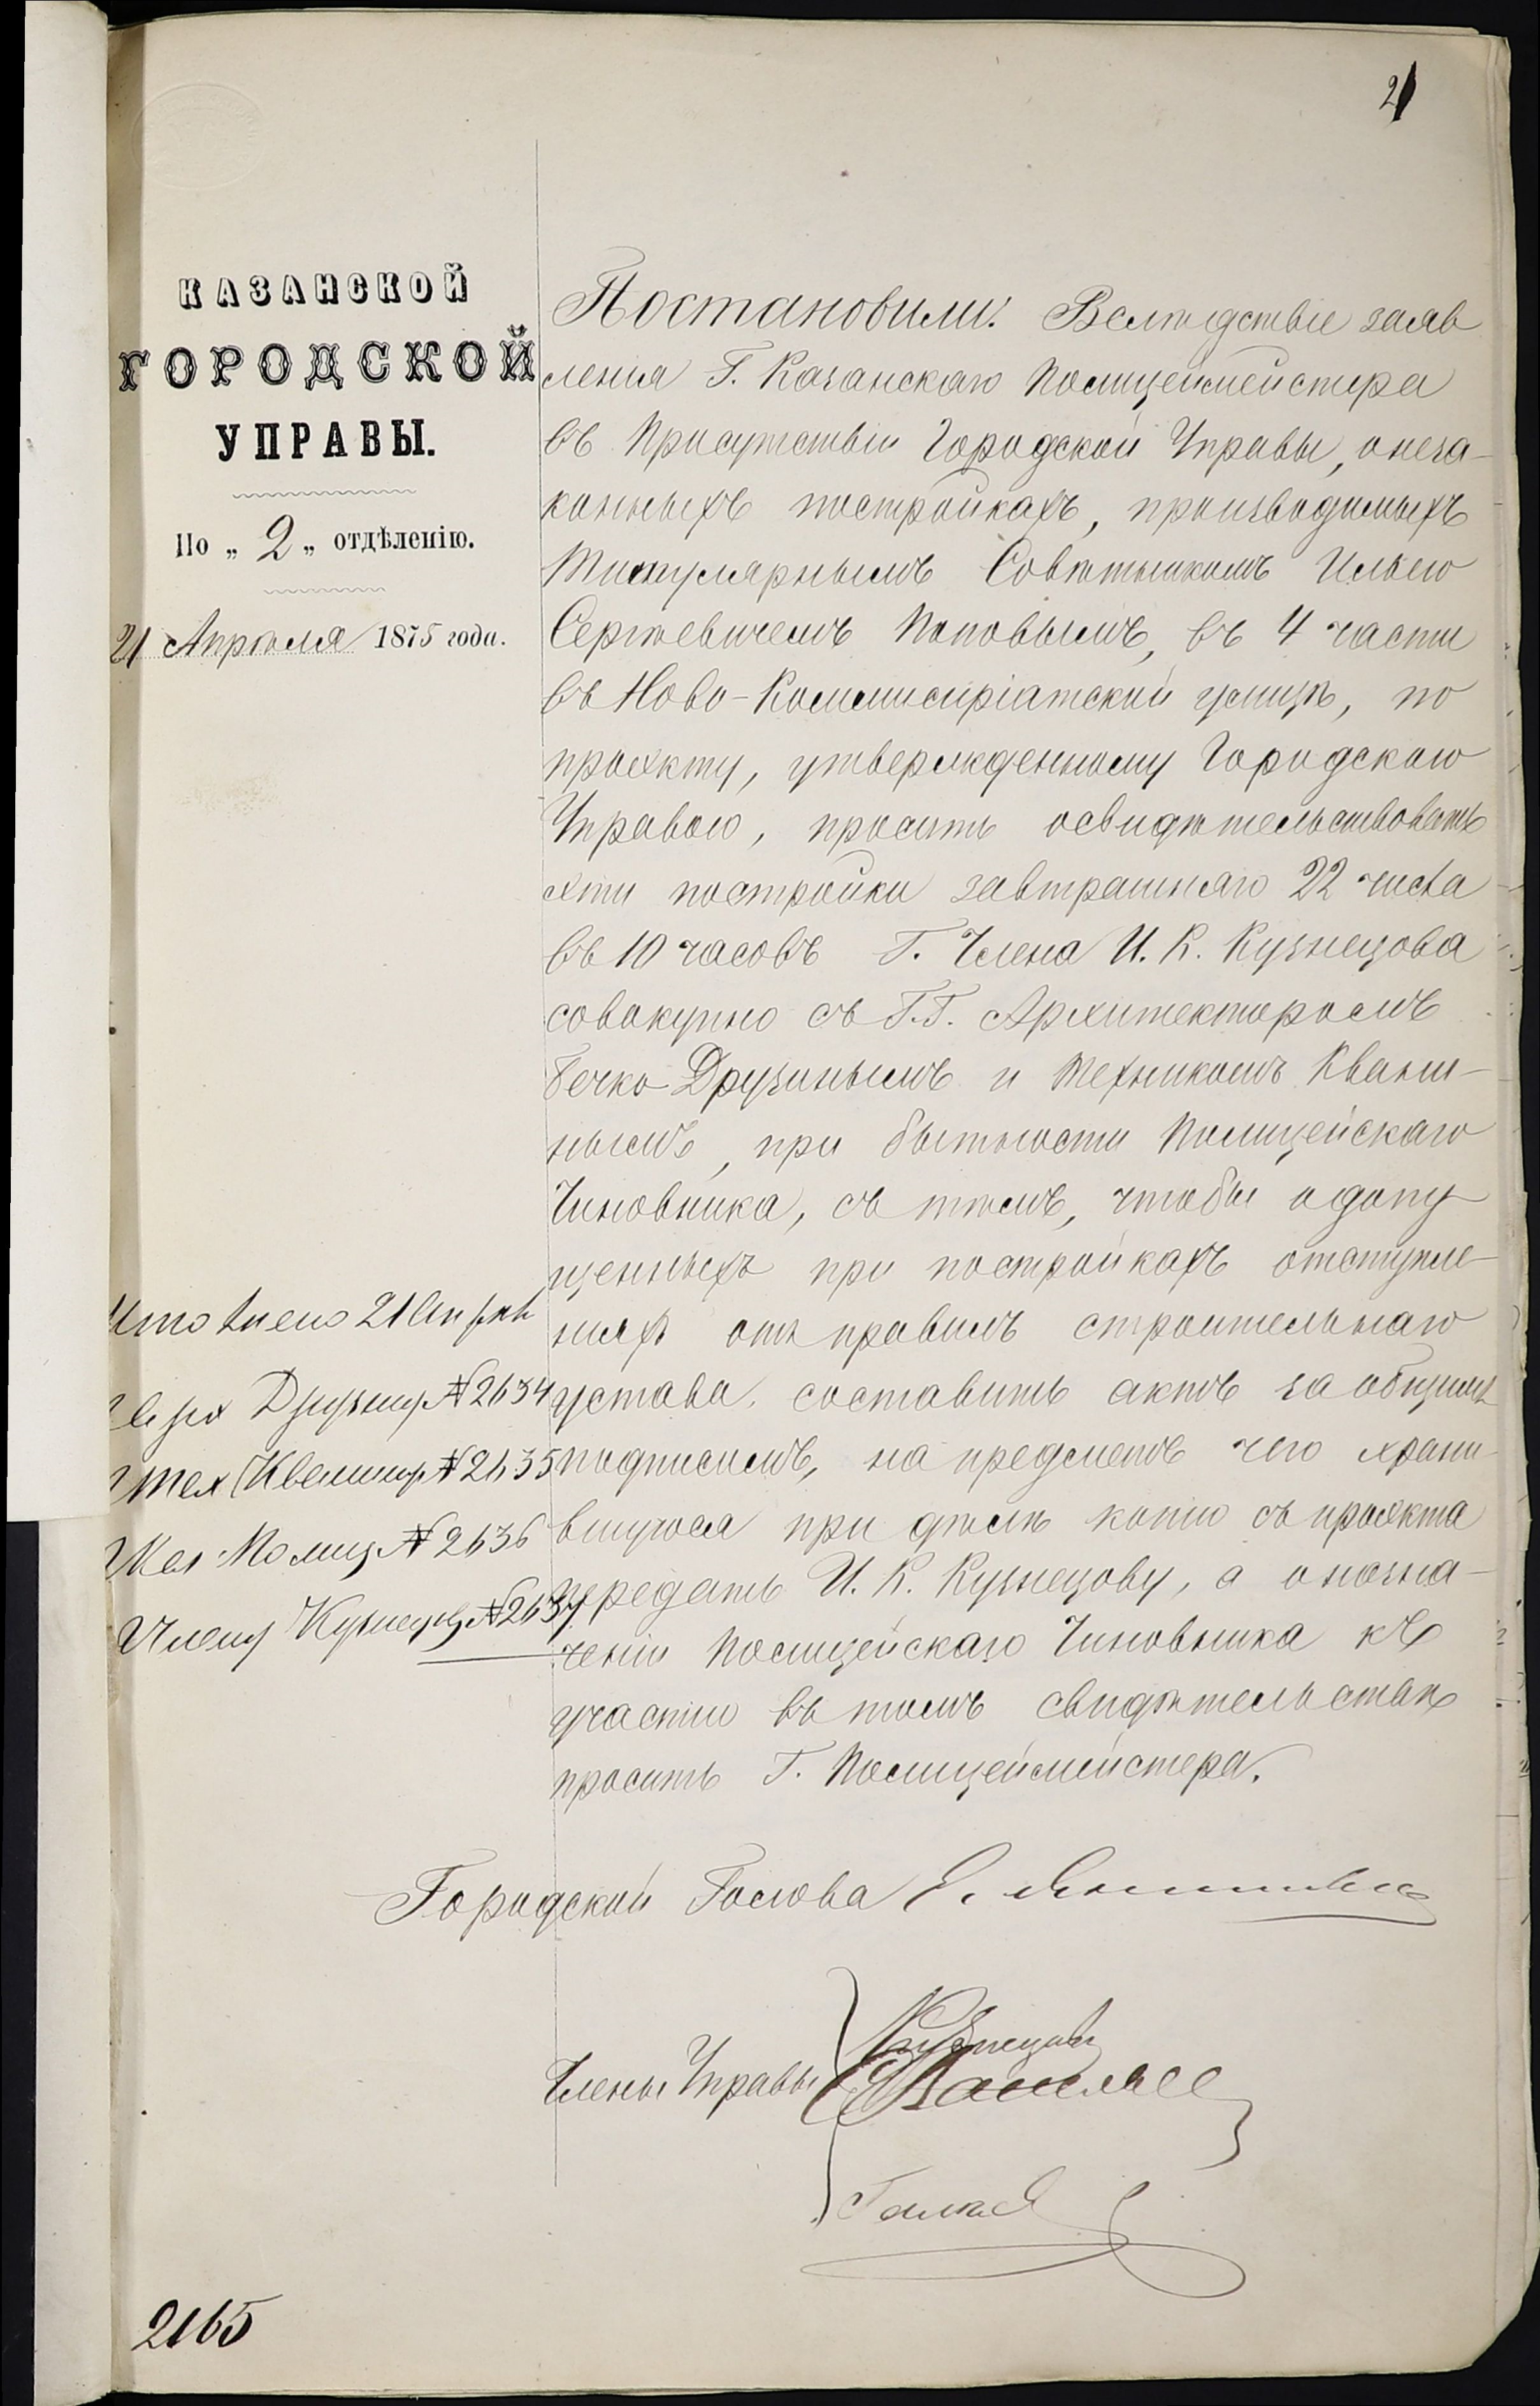 2
КАЗАНСКОЙ
ГОРОДСКОЙ
УПРАВЫ.
По „ 2 „ отдѣленію.
21 Апрѣля 1875 года.
Постановили: Вслѣдствіе заяв
ленія Г. Казанскаго Полицеймейстера
въ Присутствіи Городской Управы, о неза-
конныхъ постройкахъ, производимыхъ
Титулярнымъ Совѣтникомъ Ильею
Сергѣевичемъ Поповымъ, въ 4 части
въ Ново-Коммисаріатской улицѣ, по
проэкту, утвержденному Городскою
Управою, просить освидѣтельствовать
эти постройки завтрашняго 22 числа
въ 10 часовъ Г. Члена И. К. Кузнецова
совокупно съ Г.Г. Архитекторомъ
Бечко-Друзинымъ и Техникомъ Кваш-
нымъ, при бытности Полицейскаго
Чиновника, съ тѣмъ, чтобы о допу
щенныхъ при постройкахъ отступле-
ніяхъ отъ правилъ строительнаго
устава, составить актъ за общимъ
подписомъ, на предметъ чего храни
вшуюся при дѣлѣ копію съ проэкта
передать И. К. Кузнецову, а о назна-
ченіи Полицейскаго Чиновника къ
участію въ томъ свидѣтельствѣ
просить Г. Полицеймейстера.
21 Апрѣля
Друзину № 2634
Тех Квашину № 2635
Каз Полиц № 2636
Члену Кузнецову № 2637
Городской Голова
Члены Управы
Кузнецовъ
2165